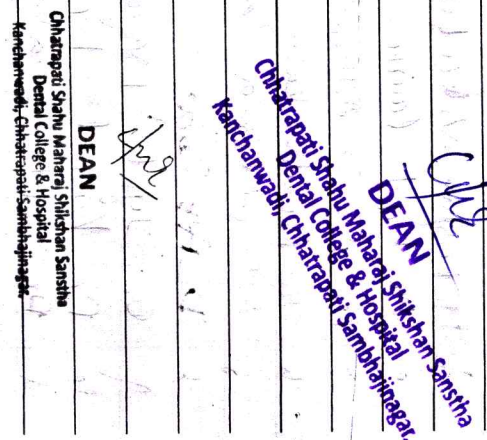 DEAN
Chhatrapati Shahu Maharaj Shikshan Sanstha
Dental College & Hospital
Kanchanwadi, Chhatrapati Sambhajinagar.
DEAN
Chhatrapati Shahu Maharaj Shikshan Sanstha
Dental College & Hospital
Kanchanwadi, Chhatrapati Sambhajinagar.